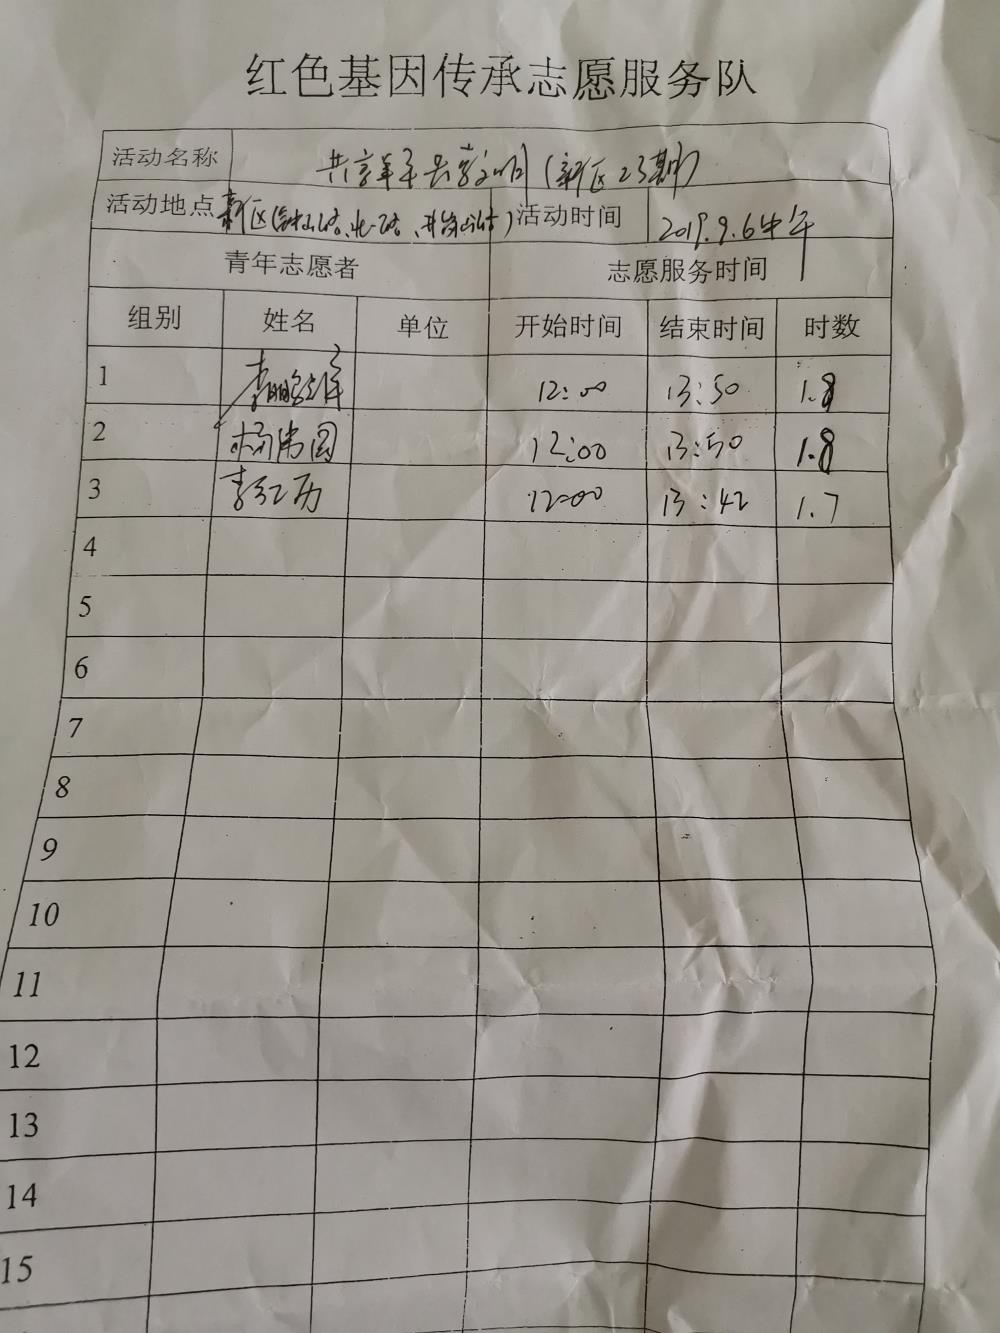 红色基因传承志愿服务队
活动名称 共享单车共享文明(新区23期)
活动地点 新区( 路、 路、井岗山路) 活动时间 2019.9.6中午
青年志愿者 志愿服务时间
组别 姓名 单位 开始时间 结束时间 时数
1 李 12:00 13:50 1.8
2 杨伟国 12:00 13:50 1.8
3 李红历 12:00 13:42 1.7
4
5
6
7
8
9
10
11
12
13
14
15